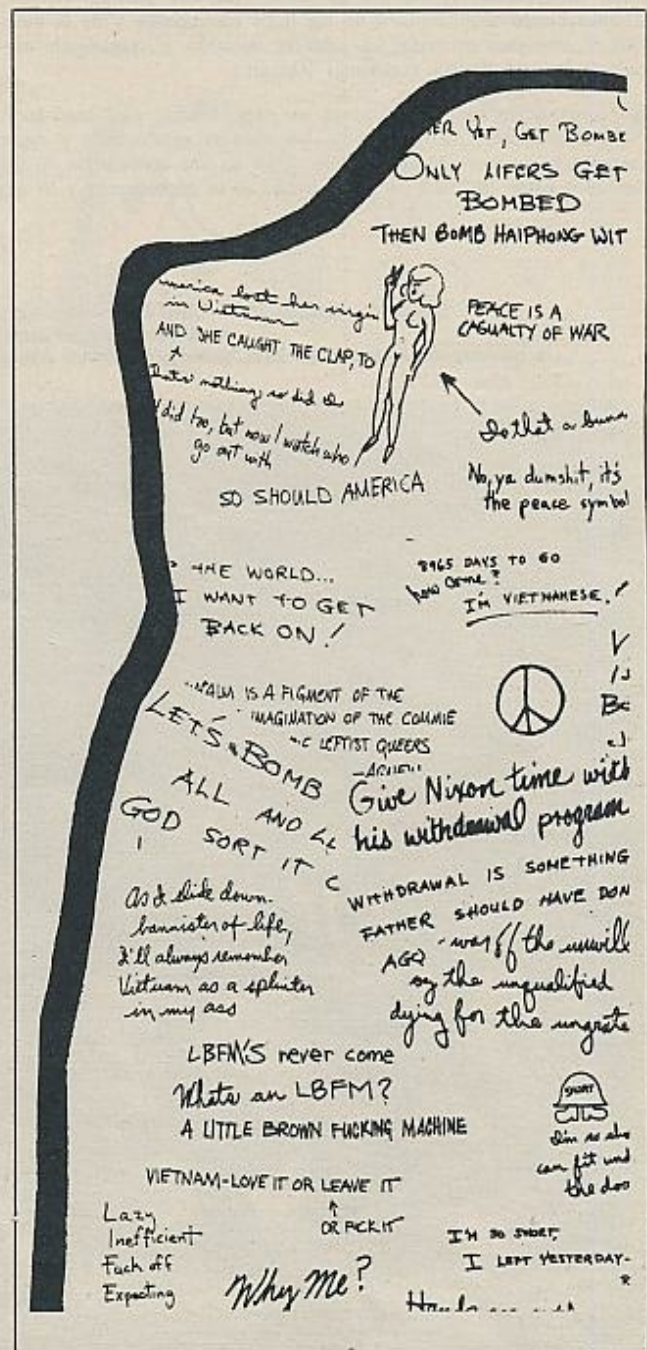 YET, GET BOMBE
ONLY LIFERS GET
BOMBED
THEN BOMB HAIPHONG WIT
merica lost her virgin
in Vietnam
AND SHE CAUGHT THE CLAP, TO
thats nothing, so did I
I did too, but now I watch who
go out with
SO SHOULD AMERICA
PEACE IS A
CASUALTY OF WAR
Is that a
No, ya dumshit, it's
the peace symbol
THE WORLD...
I WANT TO GET
BACK ON!
8965 DAYS TO GO
how come?
I'M VIETNAMESE!
IS A FIGMENT OF THE
IMAGINATION OF THE COMMIE
LEFTIST QUEERS
LET'S BOMB
ALL AND
GOD SORT IT
Give Nixon time with
his withdrawal program
WITHDRAWAL IS SOMETHING
FATHER SHOULD HAVE DON
AGO
war of the unwill
by the unqualified
dying for the ungrate
As I slide down
bannister of life,
I'll always remember
Vietnam as a splinter
in my ass
LBFM'S never come
Whats an LBFM?
A LITTLE BROWN FUCKING MACHINE
SHORT
I'm so sho
can fit und
the doo
VIETNAM-LOVE IT OR LEAVE IT
OR FUCK IT
Lazy
Inefficient
Fuck off
Expecting
Why Me?
I'M SO SHORT,
I LEFT YESTERDAY-